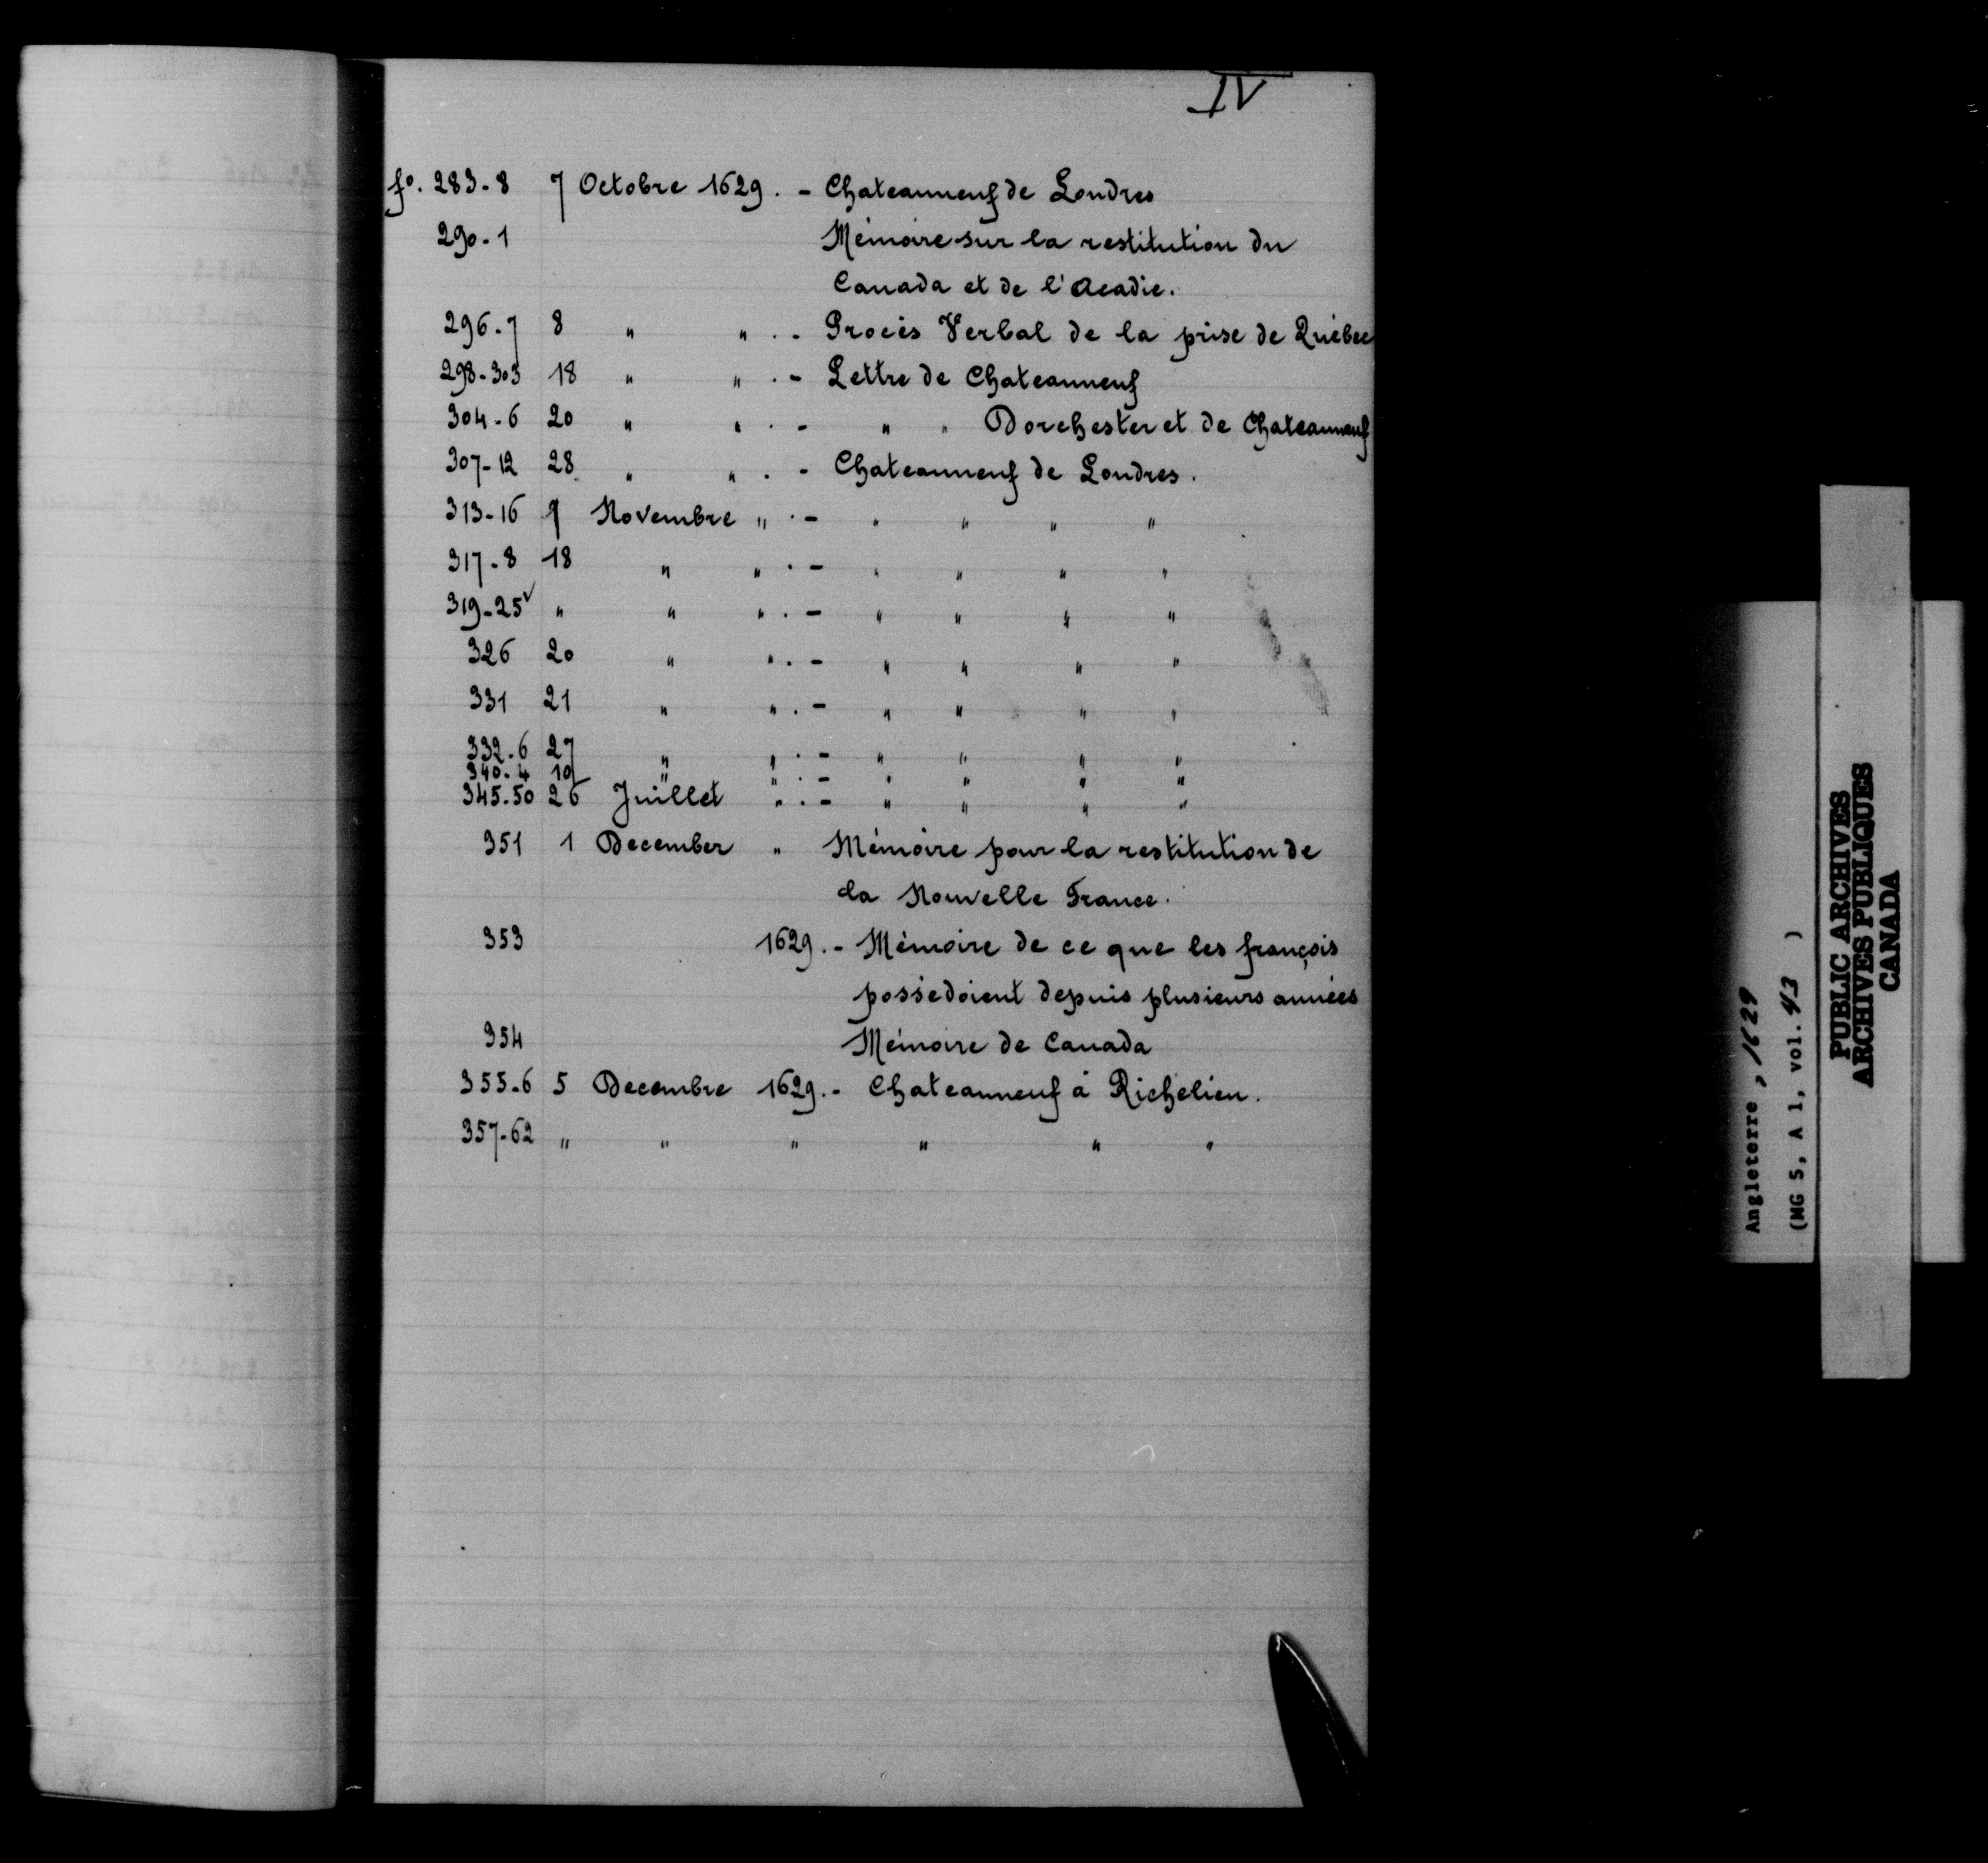 IV
fo. 283-8 7 Octobre 1629. - Chateauneuf de Londres
290-1 Mémoire sur la restitution du
Canada et de l'Acadie.
296-7 8 " " . - Procès Verbal de la prise de Québec
298-303 18 " " . - Lettre de Chateauneuf
304-6 20 " " . - " " Dorchester et de Chateauneuf
307-12 28 " " . - Chateauneuf de Londres.
313-16 9 Novembre " . - " " " "
317-8 18 " " . - " " " "
319-25v " " " . - " " " "
326 20 " " . - " " " "
331 21 " " . - " " " "
332-6 27 " " . - " " " "
340-4 10 " " . - " " " "
345-50 26 Juillet " . - " " " "
351 1 December " Mémoire pour la restitution de
la Nouvelle France.
353 1629. - Mémoire de ce que les françois
possèdoient depuis plusieurs années
354 Mémoire de Canada
355-6 5 Decembre 1629. - Chateauneuf à Richelieu.
357-62 " " " " " "
Angleterre, 1629
(MG 5, A 1, vol. 43 )
PUBLIC ARCHIVES
ARCHIVES PUBLIQUES
CANADA